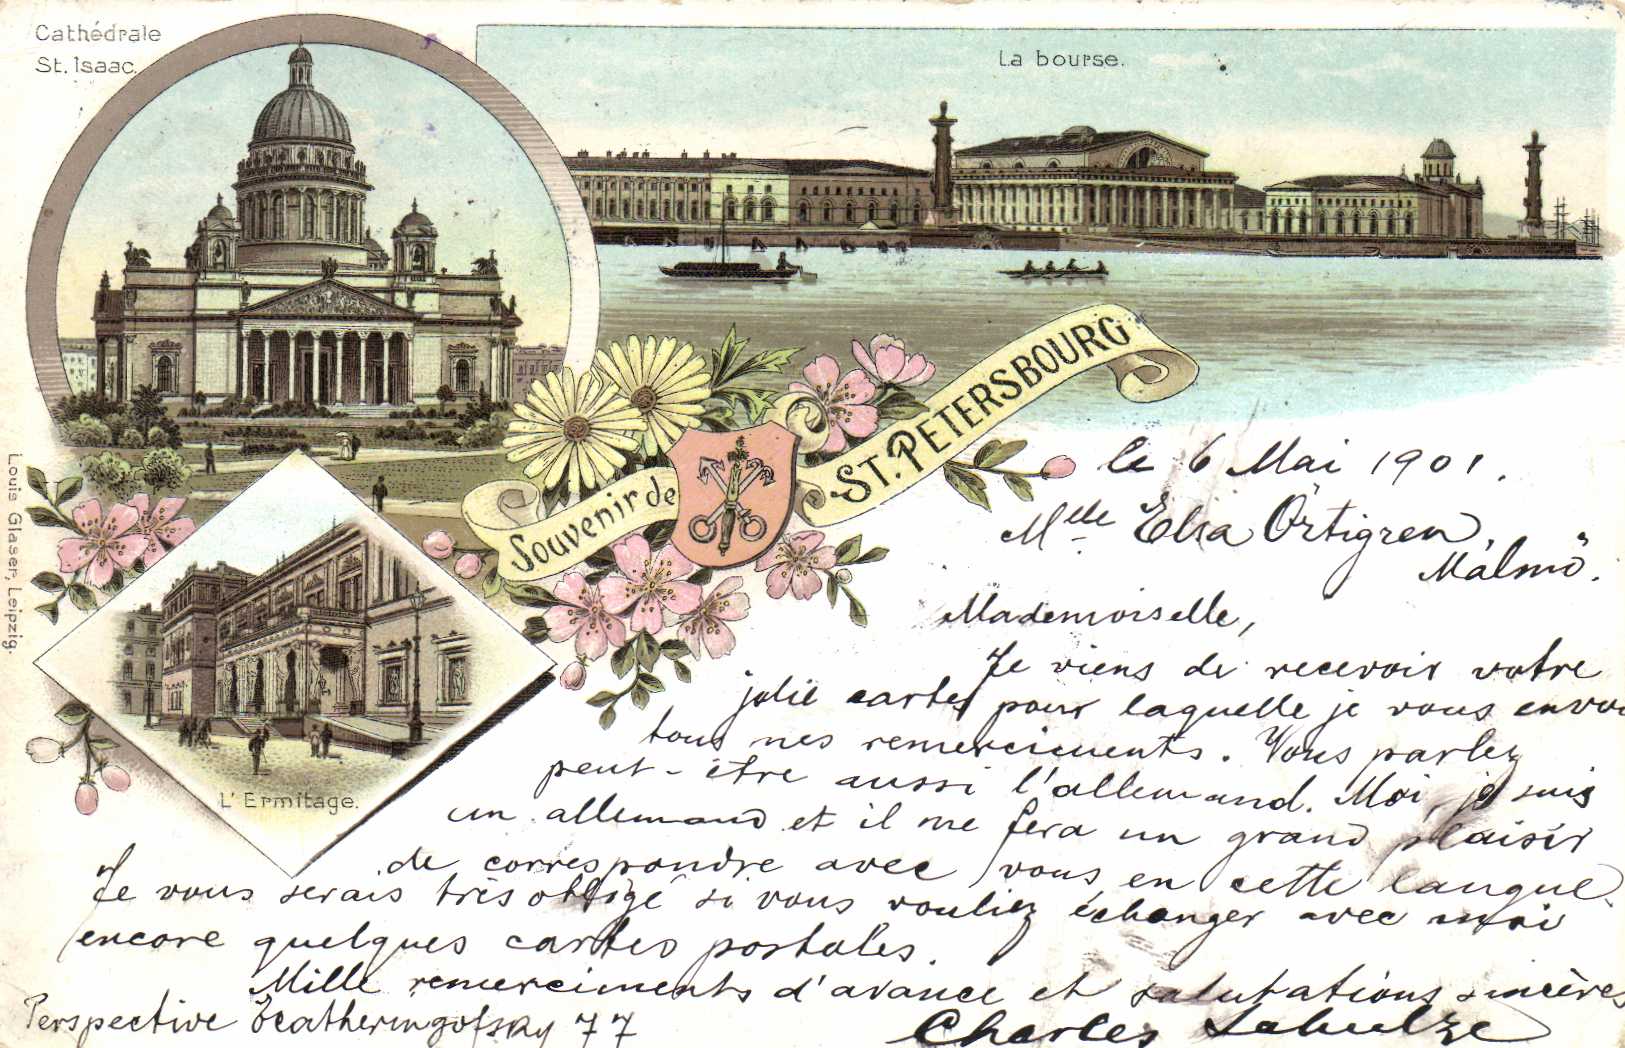 Cathédrale
St. Isaac.
La bourse.
Souvenir de
ST. PETERSBOURG
L'Ermitage.
Louis Glaser, Leipzig.
le 6 Mai 1901.
Mlle Elsa Örtigren,
Malmö.
Mademoiselle,
Je viens de recevoir votre
jolie cartes pour laquelle je vous envoi
tous mes remerciments. Vous parlez
peut-être aussi l'allemand. Moi, je suis
un allemand et il me fera un grand plaisir
de correspondre avec vous en cette langue.
Je vous serais très obligé si vous vouliez échanger avec moi
encore quelques cartes postales.
Mille remerciments d'avance et salutations sincères
Charles Schultze
Perspective Ecatheringofsky 77